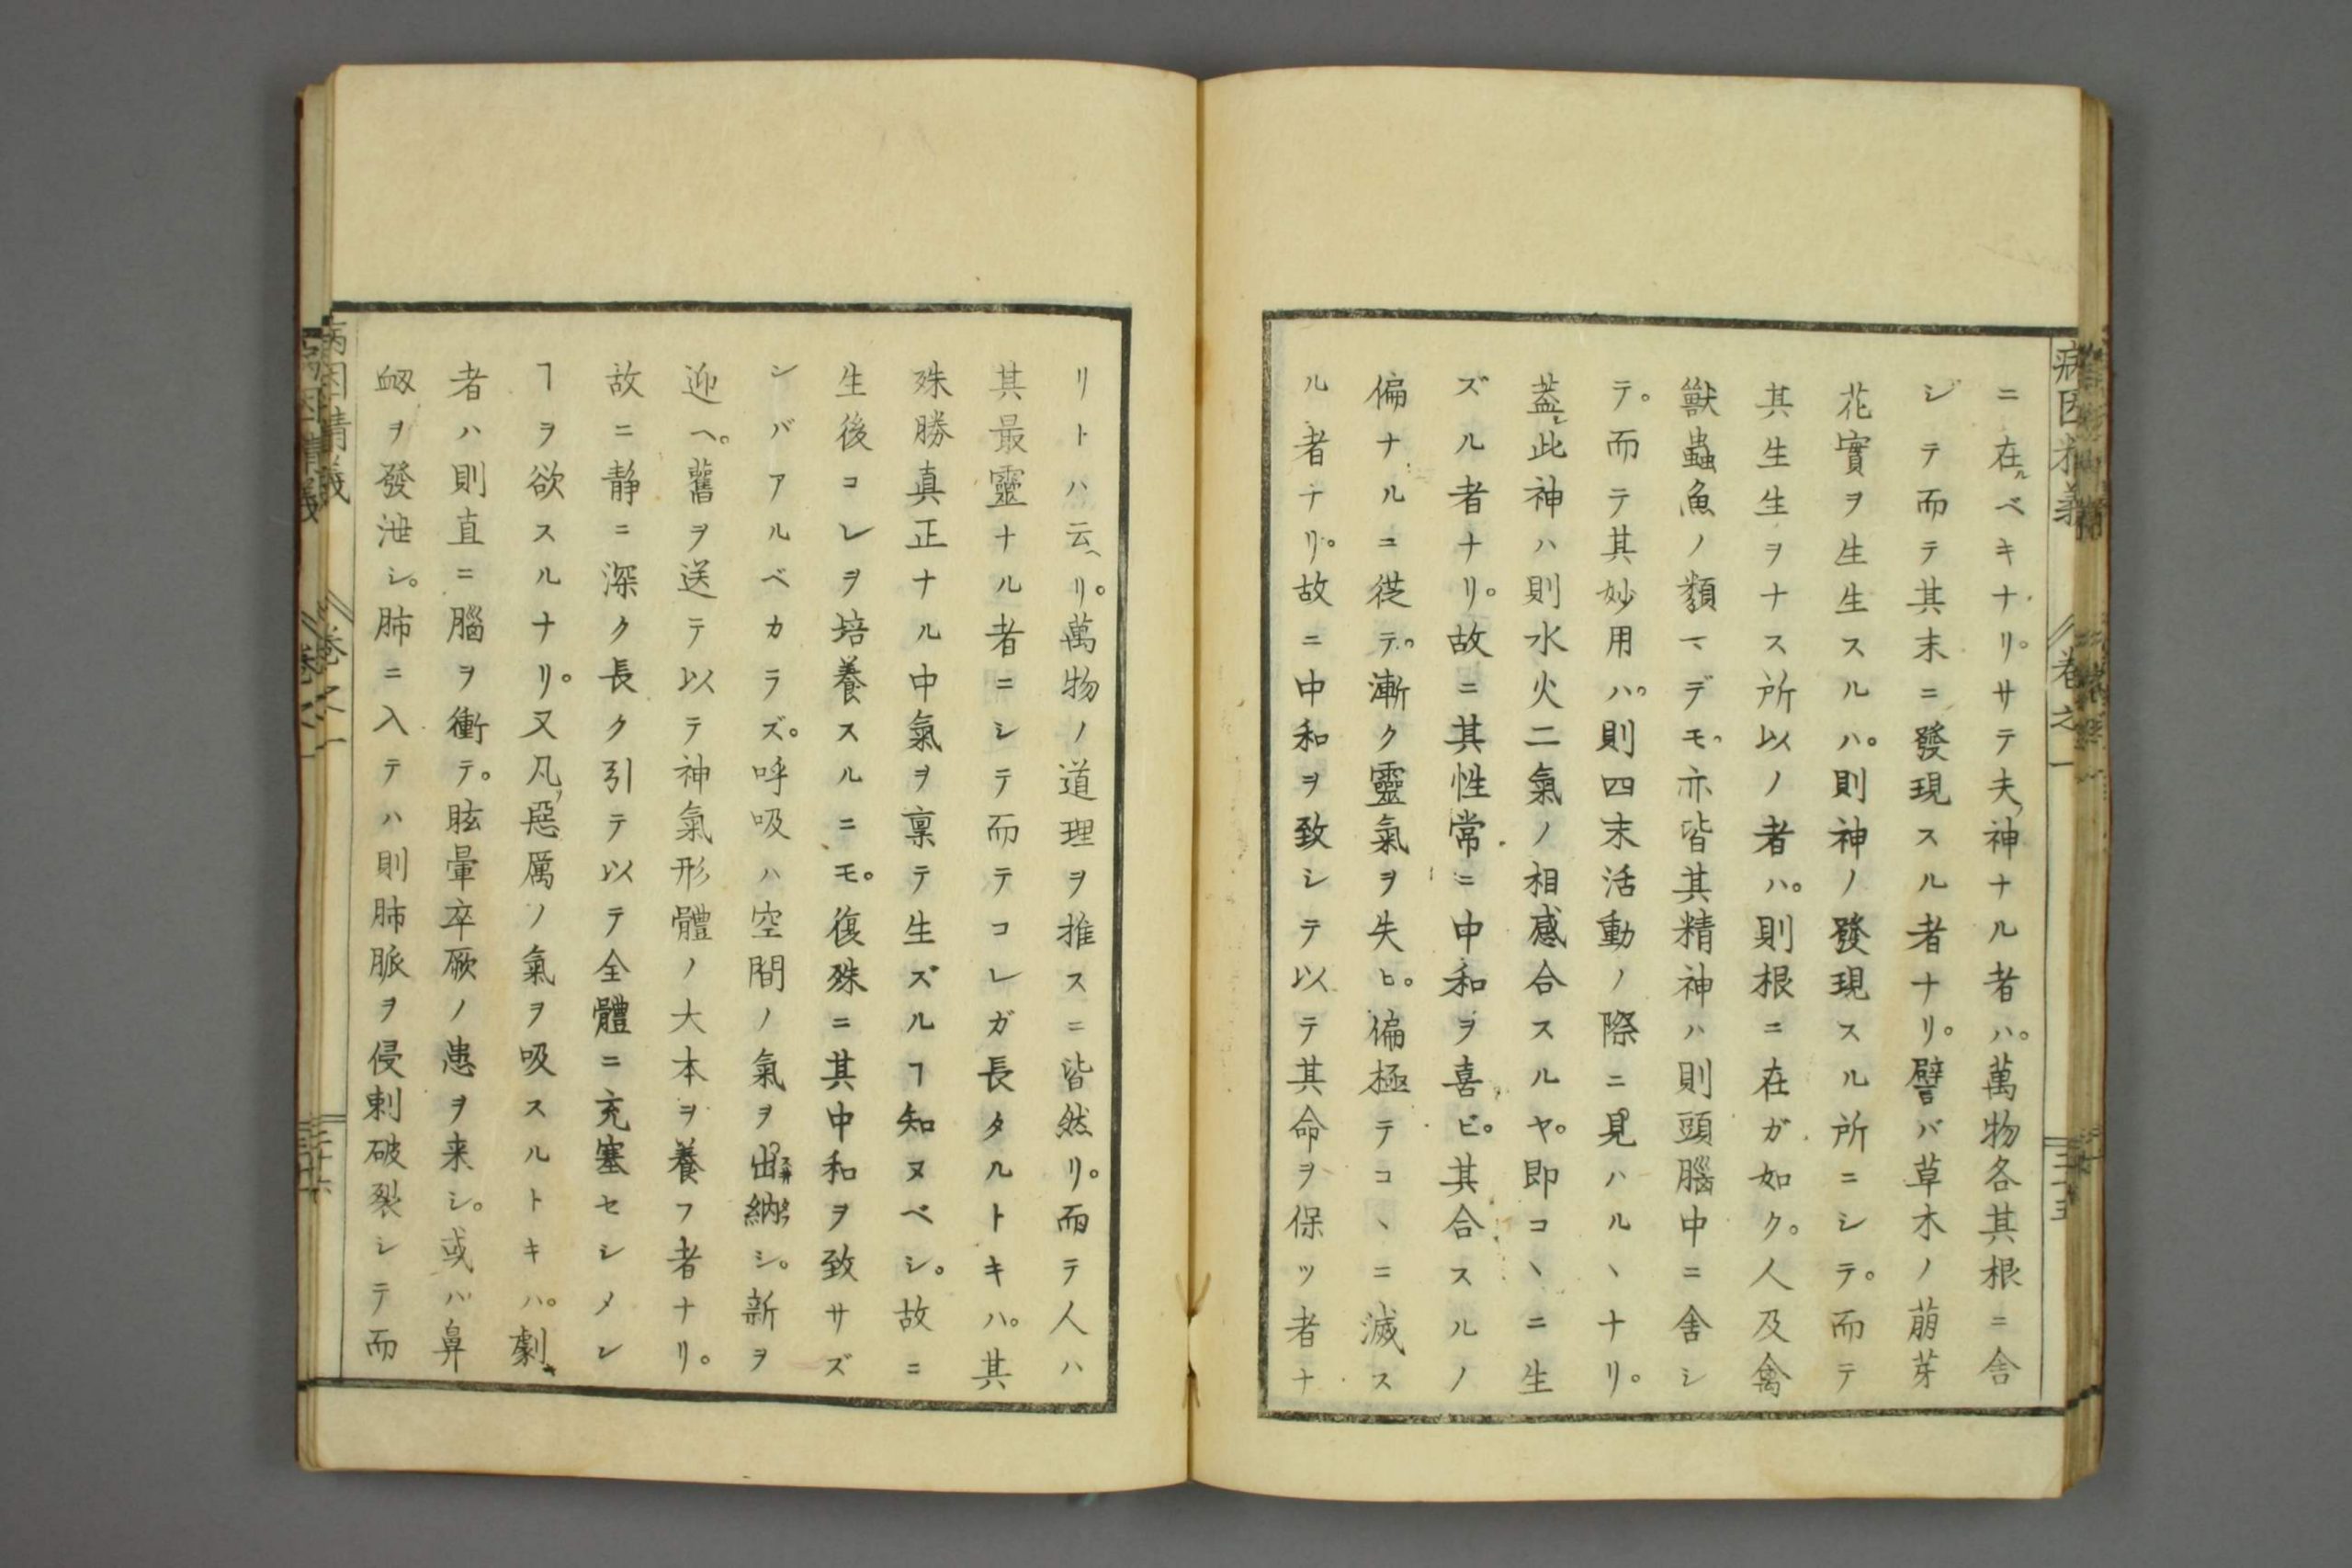 病因精義 卷之一 三十五
ニ在ルベキナリ。サテ夫、神ナル者ハ。萬物各其根ニ舎
シテ而テ其末ニ發現スル者ナリ。譬バ草木ノ萠芽
花實ヲ生生スルハ。則神ノ發現スル所ニシテ。而テ
其生生ヲナス所以ノ者ハ。則根ニ在ガ如ク。人及禽
獸蟲魚ノ類マデモ、亦皆其精神ハ則頭腦中ニ舎シ
テ。而テ其妙用ハ。則四末活動ノ際ニ見ハルヽナリ。
蓋シ此神ハ則水火二氣ノ相感合スルヤ。即コヽニ生
ズル者ナリ。故ニ其性常ニ中和ヲ喜ビ。其合スルノ
偏ナルニ從テ。漸ク靈氣ヲ失ヒ。偏極テコヽニ滅ス
ル者ナリ。故ニ中和ヲ致シテ以テ其命ヲ保ツ者ナ
リトハ云ヘリ。萬物ノ道理ヲ推スニ皆然リ。而テ人ハ
其最靈ナル者ニシテ而テコレガ長タルトキハ。其
殊勝真正ナル中氣ヲ稟テ生ズルヿ知ヌベシ。故ニ
生後コレヲ培養スルニモ。復殊ニ其中和ヲ致サズ
シバアルベカラズ。呼吸ハ空間ノ氣ヲ出納シ。新ヲ
迎ヘ。舊ヲ送テ以テ神氣形體ノ大本ヲ養フ者ナリ。
故ニ静ニ深ク長ク引テ以テ全體ニ充塞セシメン
ヿヲ欲スルナリ。又凡ソ惡厲ノ氣ヲ吸スルトキハ。劇キ
者ハ則直ニ腦ヲ衝テ。眩暈卒厥ノ患ヲ来シ。或ハ鼻
衂ヲ發泄シ。肺ニ入テハ則肺脈ヲ侵刺破裂シテ而
病因精義 卷之一 三十六